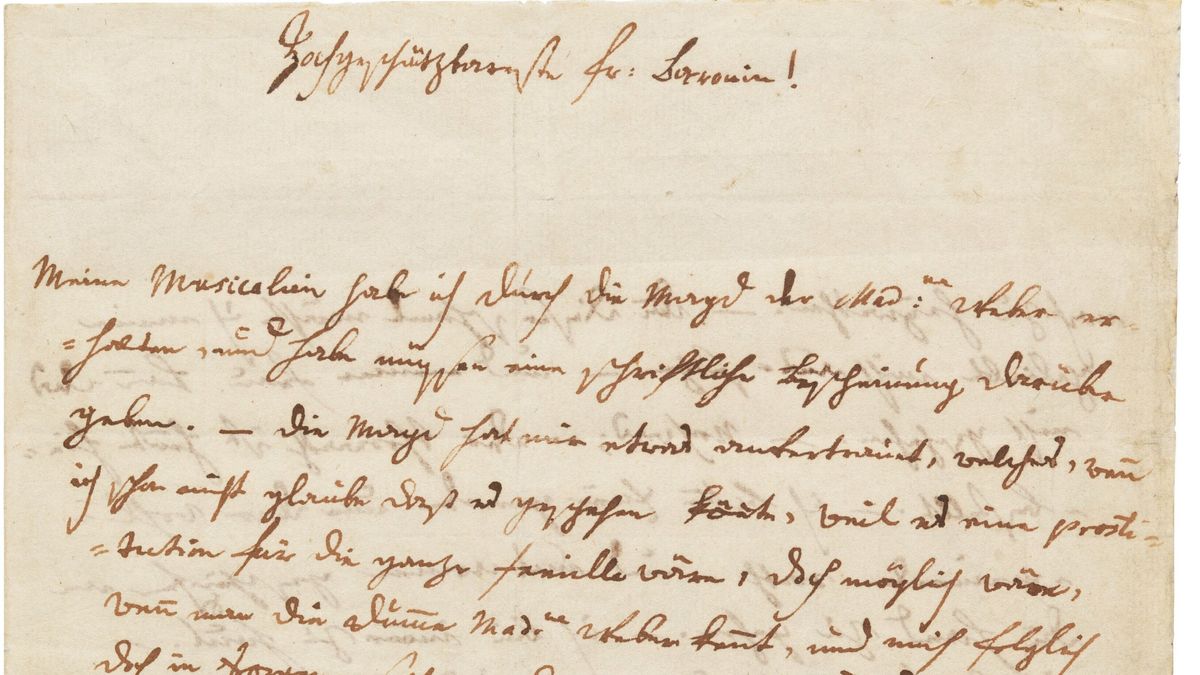 Hochgeschätzbareste fr: Baronin!
Meine Musicalien habe ich durch die Magd der Mad:me Weber er-
=halten, und habe müssen eine schriftliche Bescheinung darüber
geben. — die Magd hat mir etwas anvertrauet, welches, wenn
ich schon nicht glaube daß es geschehen könnte, weil es eine prosti-
=tution für die ganze familie wäre, doch möglich wäre,
wenn man die dumme Mad:me Weber kennt, und mich folglich
doch in Sorge